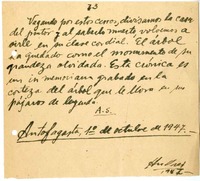 23
Vagando por estos cerros, divisamos la casa
del pintor y al saberlo muerto volvemos a
oirle en su claro cordial. El árbol
ha quedado como el monumento de su
grandeza olvidada. Esta crónica es
un in memoriam grabado en la
corteza del árbol que le llora en sus
pájaros de
A. S.
Antofagasta, 1º de octubre de 1947.
1947